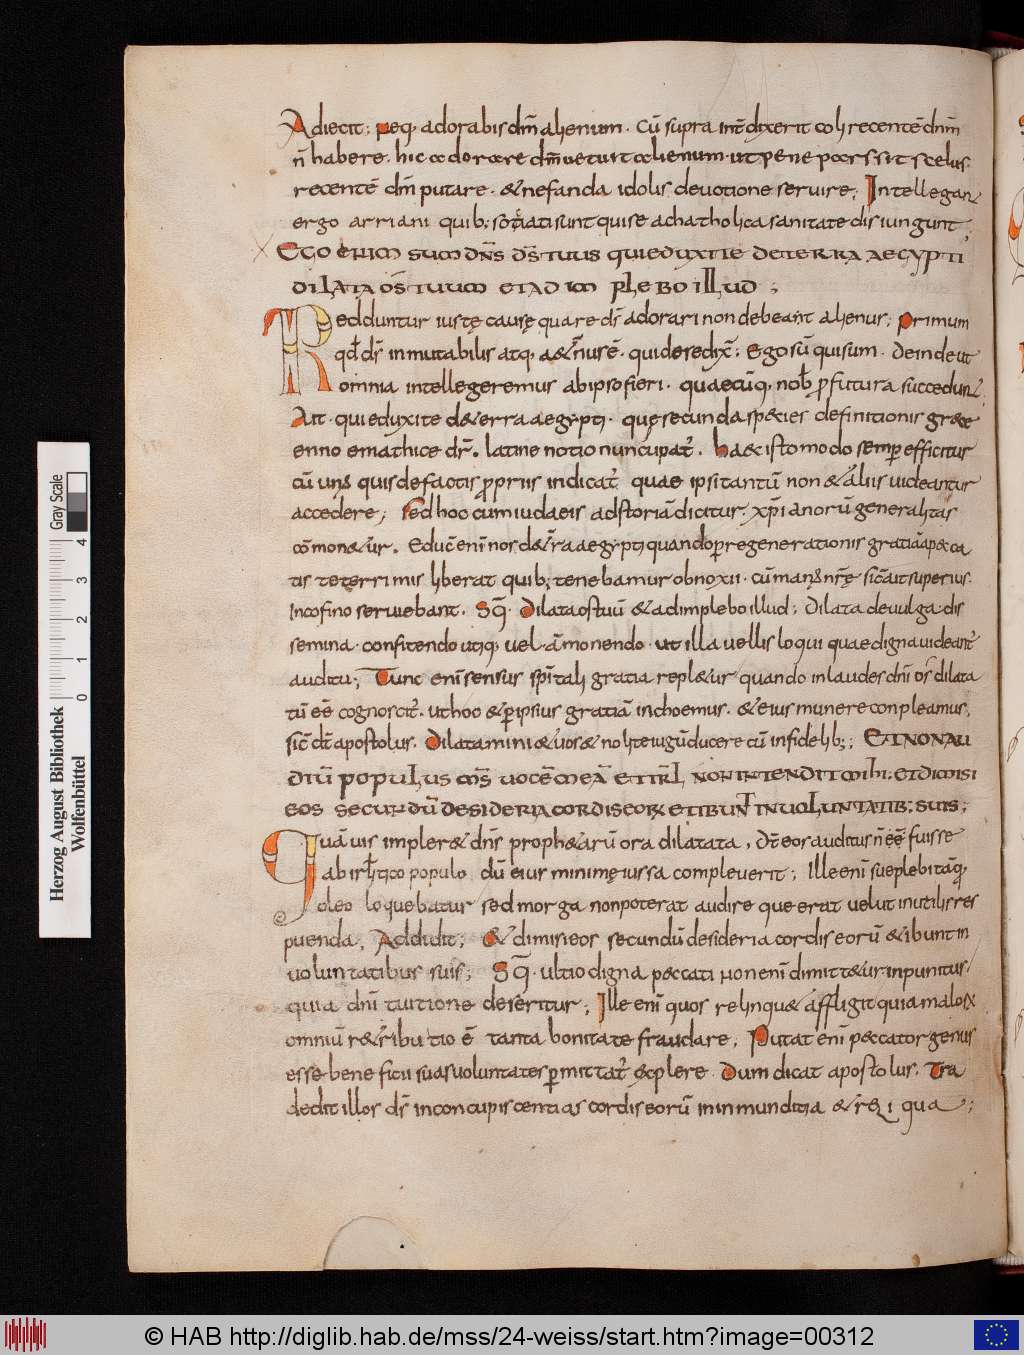 Adiecit; neq; adorabis dm̄ alienum. Cū supra int̄dixerit coli recentē dm̄
n̄ habere. hic adorare dm̄ uetuit alienum. ut pene pars sit scelus.
recentē dm̄ putare. & nefanda idolis deuotione seruire; Intellegant
ergo arriani quib; sociati sunt qui se a chatholica sanitate disiungunt;
EGO ENIM SUM DN̄S DS̄ TUUS QUI EDUXI TE DE TERRA AEGYPTI
DILATA OS TUUM ET ADIMPLEBO ILLUD;
Redduntur iustę causę quare ds̄ adorari non debeant alienus; primum
qđ ds̄ inmutabilis atq; aet̄nus ē. qui de se dix̄; Ego sū qui sum. deinde ut
omnia intellegeremus ab ipso fieri. quaecūq; nob̄ profutura succedunt;
Ait. qui eduxi te de terra aegypti. quę secunda species definitionis grece
ennoemathice dr̄. latine notio nuncupat̄. haec isto modo semper efficitur
cū unus quis de factis propriis indicat̄ quae ipsi tantū non & aliis uideantur
accedere; Sed hoc cum iudaeis ad storiā dicitur. xp̄ianorū generalitas
cōmonetur. Educ̄ enī nos de t̄ra aegypti quando per regenerationis gratiā a pecca
tis teterrimis liberat quib; tenebamur obnoxii. cū manus nr̄ę sic̄ ait superius.
In cofino seruiebant. Sq̄. Dilata os tuū & adimplebo illud; Dilata deuulga dis
semina. confitendo utiq; uel āmonendo. ut illa uellis loqui quae digna uideant̄
auditu; Tunc enī sensus sp̄itali gratia repletur quando in laudes dn̄i os dilata
tū eē cognoscit̄. ut hoc & per ipsius gratiā inchoemus. & eius munere conpleamus;
sic̄ dt̄ apostolus. Dilatamini & uos & nolite iugū ducere cū infidelib;; ET NON AU
DIU̅ POPULUS MS̄ UOCĒ MEĀ ET ISRL̄ NON INTENDIT MIHI; ET DIMISI
EOS SECUNDŪ DESIDERIA CORDIS EORŪ ET IBUNT IN UOLUNTATIB; SUIS;
Quāuis impleret dn̄s prophetarū ora dilatata, dt̄ eos auditus n̄ eē fuisse
ab isrl̄itico populo dū eius minimę iussa compleuerit; Ille enī sue plebi tāq;
oleo loquebatur sed morga non poterat audire que erat uelut inutilis res
puenda; Addidit; & dimisi eos secundū desideria cordis eorū & ibunt in
uoluntatibus suis; Sq̄. ultio digna peccati non enī dimittetur inpunitus.
quia dn̄i tuitione deseritur; Ille enī quos relinquet affligit quia malorū
omniū retributio ē tanta bonitate fraudare; Putat enī peccator genus
esse beneficii suas uoluntates permittat̄ explere. Dum dicat apostolus. Tra
dedit illos ds̄ in concupiscentias cordis eorū in inmunditia & reliqua;
Herzog August Bibliothek
Wolfenbüttel
0 1 2 3 4
Gray Scale
© HAB http://diglib.hab.de/mss/24-weiss/start.htm?image=00312